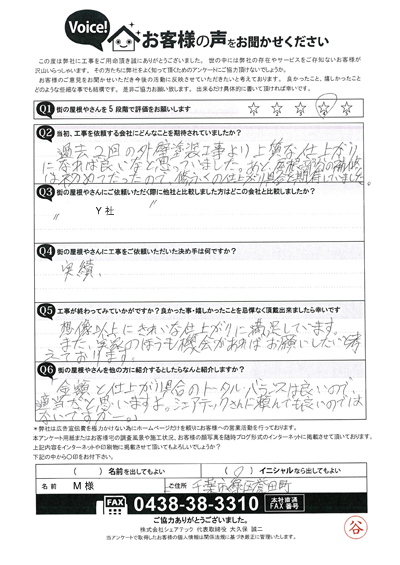 Voice!
お客様の声をお聞かせください
この度は弊社に工事をご用命頂き誠にありがとうございました。世の中には弊社の存在やサービスをご存知ないお客様が
沢山いらっしゃいます。その方たちに弊社をよく知って頂くためのアンケートにご協力頂けないでしょうか。
お客様のご意見をお聞かせいただき今後の活動に反映させていただきたいと考えております。良かったこと、嬉しかったこと
どのような些細な事でも結構です。是非ご協力お願い致します。出来るだけ具体的に書いて頂ければ幸いです。
Q1 街の屋根やさんを5段階で評価をお願いします ☆ ☆ ☆ ☆ ☆
Q2 当初、工事を依頼する会社にどんなことを期待されていましたか?
過去2回の外壁塗装工事より上質な仕上がり
になれば良いなと思っていました。あと、屋根部分の補修
は初めてだったので
Q3 街の屋根やさんにご依頼いただく際に他社と比較しました方はどこの会社と比較しましたか?
" Y社 "
Q4 街の屋根やさんに工事をご依頼いただいた決め手は何ですか?
実績。
Q5 工事が終わってみていかがですか?良かった事・嬉しかったことを忌憚なく頂戴出来ましたら幸いです
想像以上にきれいな仕上がりに満足しています。
また、実家のほうも機会があればお願いしたいと考
えております。
Q6 街の屋根やさんを他の方に紹介するとしたらなんと紹介しますか?
「金額と仕上がり具合のトータルバランスは良いので
適当だと思いますよ。シェアテックさんに頼んでも良いのでは
ないですか…。」
*弊社は広告宣伝費を極力かけない為にホームページだけを頼りにお客様への営業活動を行っております。
本アンケート用紙またはお客様宅の調査風景や施工状況、お客様の顔写真を随時ブログ形式のインターネットに掲載させて頂いております。
上記内容をインターネットや印刷物に掲載させて頂いてもよろしいでしょうか?
下記の中から〇印をお付下さい。
( ) 名前を出してもよい (〇) イニシャルなら出してもよい
名前 M様 ご住所 千葉市緑区誉田町
FAX 0438-38-3310 本社直通 FAX番号
ご協力ありがとうございました。
株式会社シェアテック 代表取締役 大久保 誠二
当アンケートで取得したお客様の個人情報は関係法規に基づき厳正に管理いたします。
谷